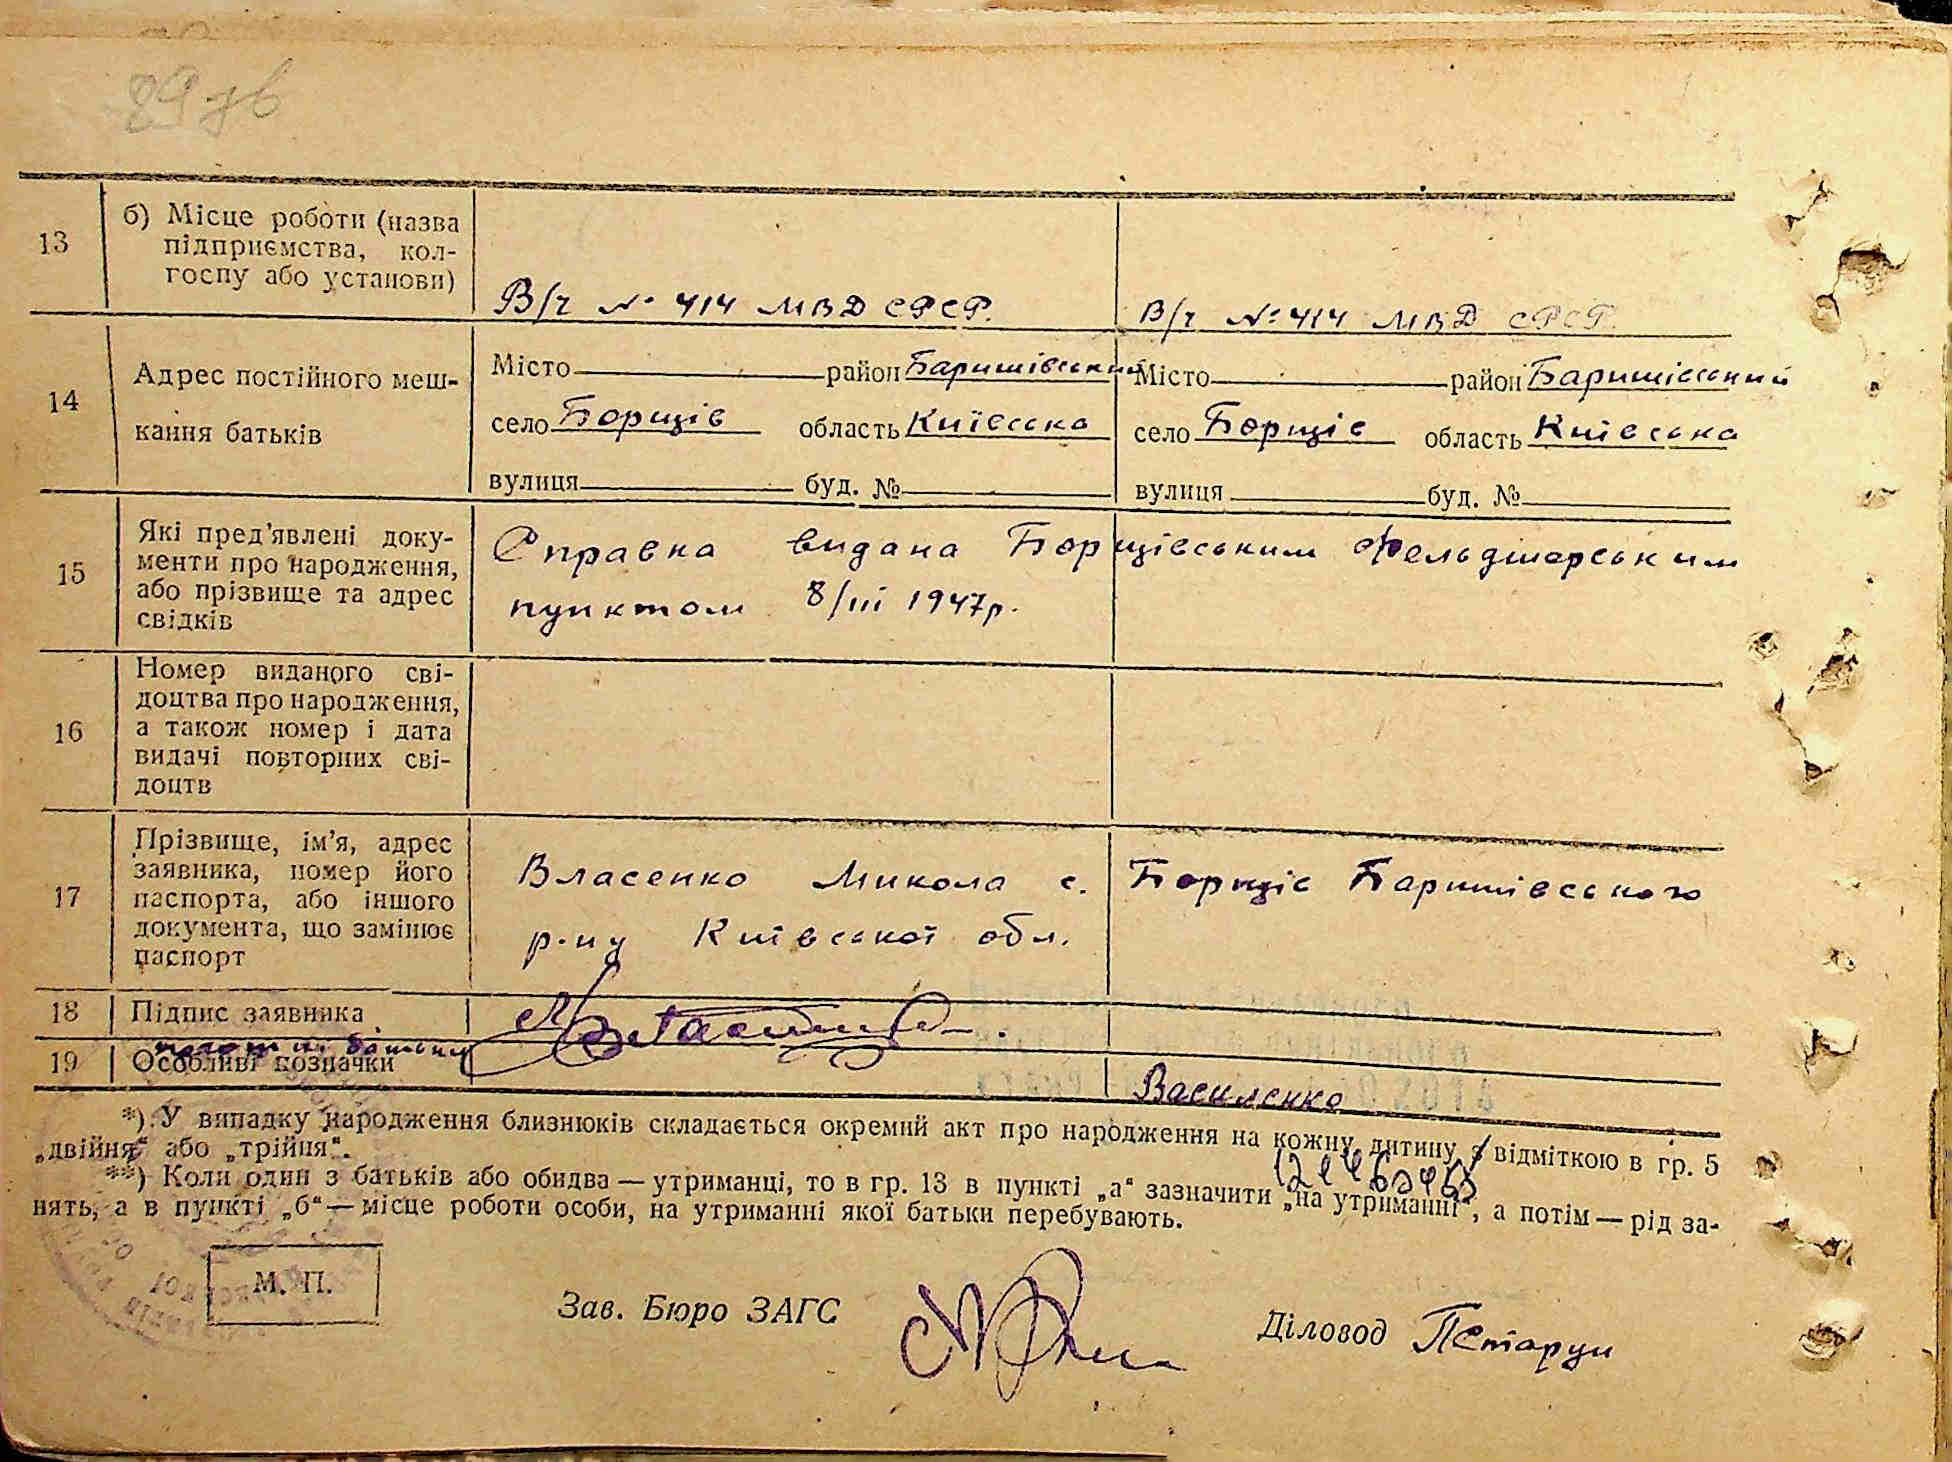 29 зв
13 б) Місце роботи (назва
підприємства, кол-
госпу або установи)
В/ч № 414 МВД СРСР. В/ч № 414 МВД СРСР.
14 Адрес постійного меш-
кання батьків
Місто район Баришівський Місто район Баришівський
село Борщів область Київська село Борщів область Київська
вулиця буд. № вулиця буд. №
15 Які пред'явлені доку-
менти про народження,
або прізвище та адрес
свідків
Справка видана Борщівським Фельдшерським
пунктом 8/III 1947р.
16 Номер виданого сві-
доцтва про народження,
а також номер і дата
видачі повторних сві-
доцтв
17 Прізвище, ім'я, адрес
заявника, номер його
паспорта, або іншого
документа, що замінює
паспорт
Власенко Микола с. Борщів Баришівського
р-ну Київської обл.
18 Підпис заявника
19 Особливі позначки
Василенко
*) У випадку народження близнюків складається окремий акт про народження на кожну дитину з відміткою в гр. 5
„двійня“ або „трійня“.
**) Коли один з батьків або обидва — утриманці, то в гр. 13 в пункті „а“ зазначити „на утриманні“, а потім — рід за-
нять, а в пункті „б“ — місце роботи особи, на утриманні якої батьки перебувають.
М. П.
Зав. Бюро ЗАГС
Діловод